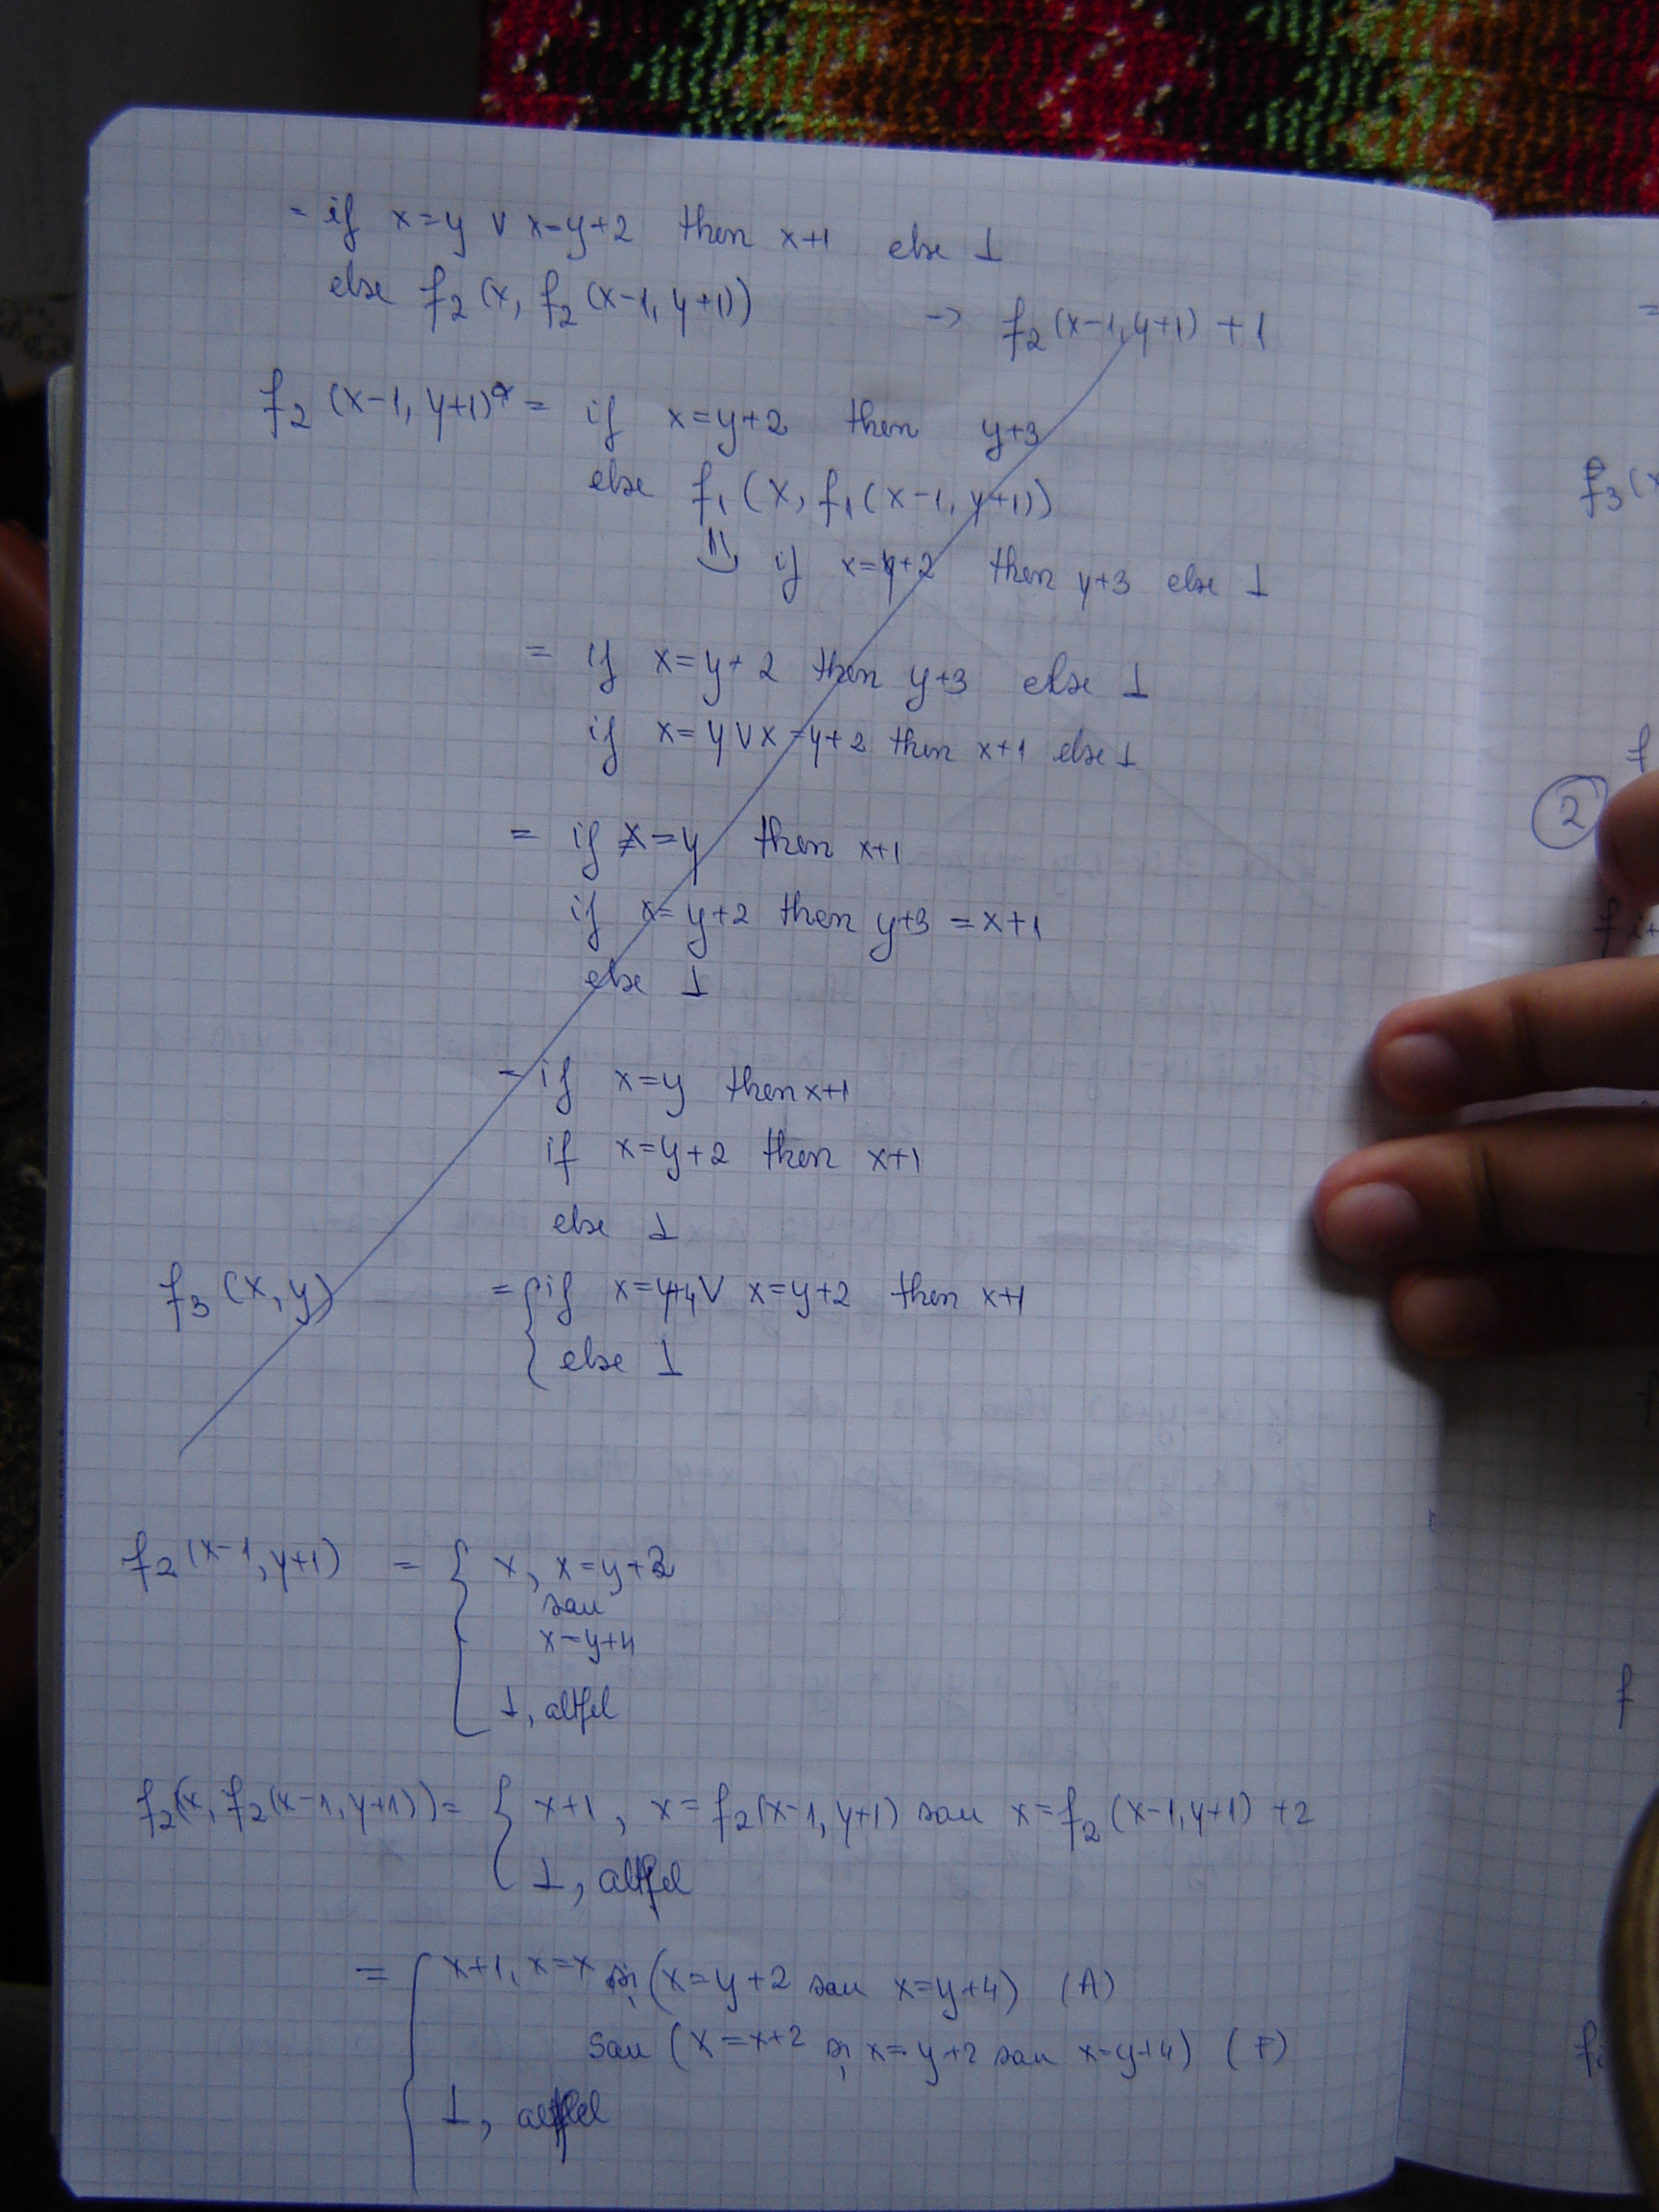 = if x=y ∨ x=y+2 then x+1 else ⊥
else f₂(x, f₂(x-1, y+1)) → f₂(x-1, y+1) + 1
f₂(x-1, y+1) = if x=y+2 then y+3
else f₁(x, f₁(x-1, y+1))
if x=y+2 then y+3 else ⊥
= if x=y+2 then y+3 else ⊥
if x=y ∨ x=y+2 then x+1 else ⊥
= if x=y then x+1
if x=y+2 then y+3 = x+1
else ⊥
= if x=y then x+1
if x=y+2 then x+1
else ⊥
f₃(x, y) = { if x=y+4 ∨ x=y+2 then x+1
else ⊥
f₂(x-1, y+1) = { x, x=y+2
sau
x=y+4
⊥, altfel
f₂(x, f₂(x-1, y+1)) = { x+1, x=f₂(x-1, y+1) sau x=f₂(x-1, y+1) +2
⊥, altfel
= { x+1, x=x și (x=y+2 sau x=y+4) (A)
sau (x=x+2 și x=y+2 sau x=y+4) (F)
⊥, altfel
=
f₃(x
f
2
f i+
f
f